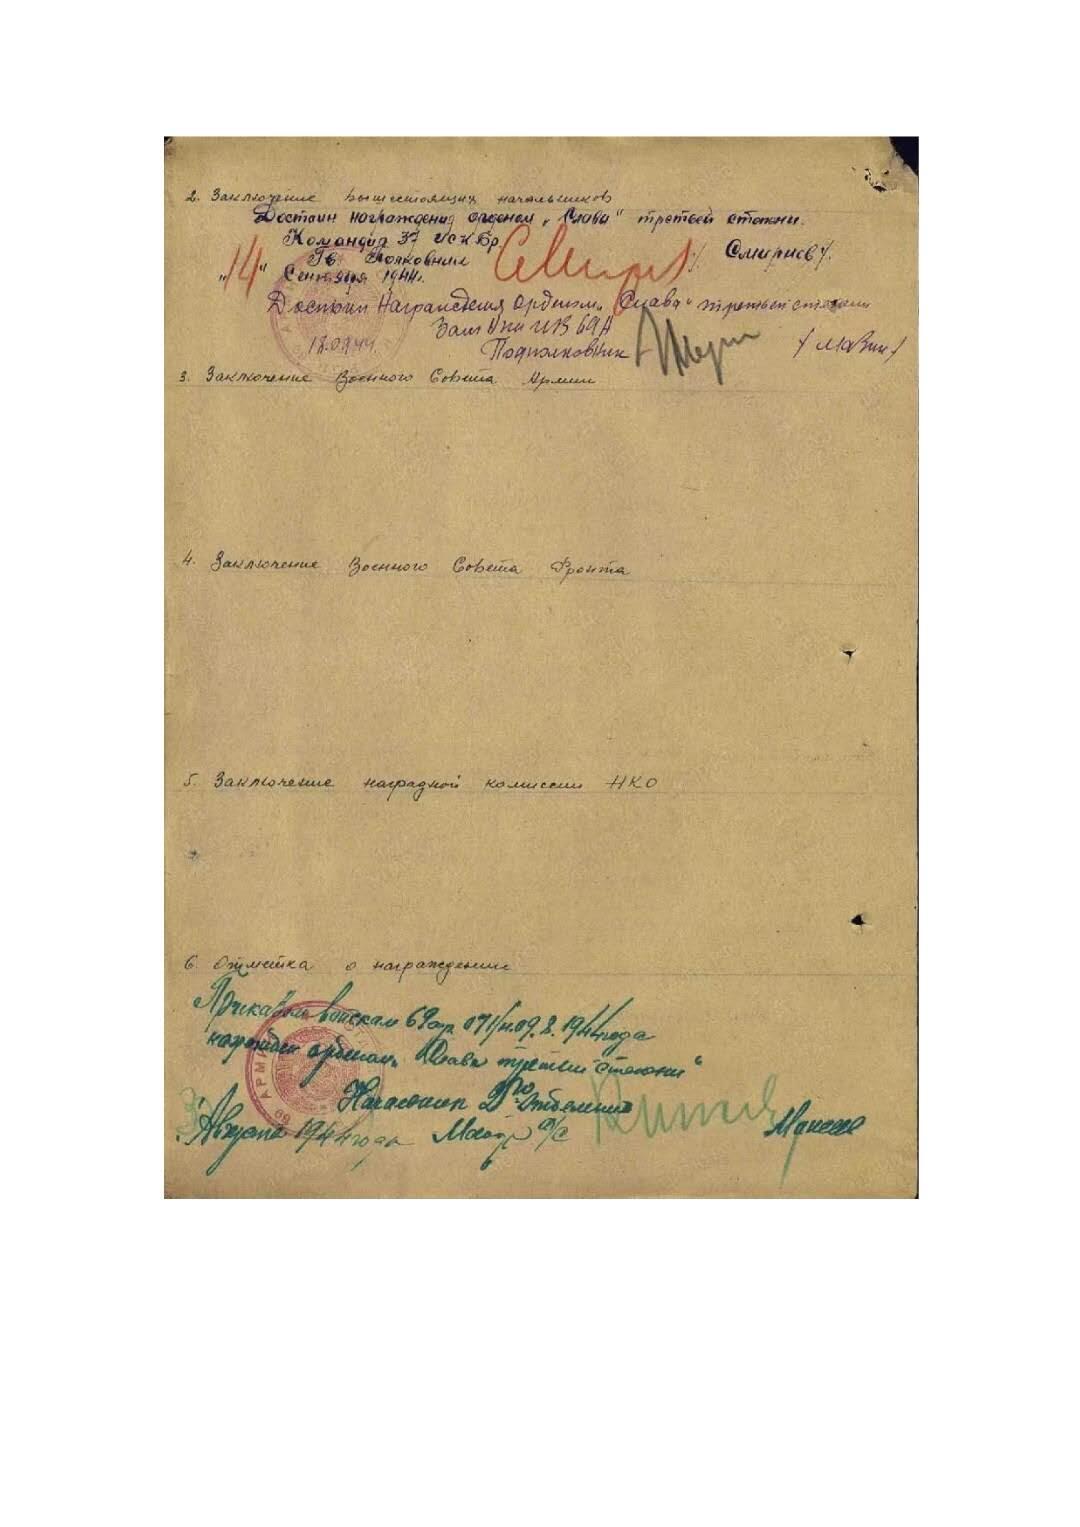 2. Заключение вышестоящих начальников
Достоин награждения орденом „Слава" третьей степени.
Командир 37 ИСКБр
Гв Полковник /Смирнов/.
„14" Сентября 1944г.
Достоин Награждения орденом „Слава" третьей степени
Зам 69А
18.09.44. Подполковник
3. Заключение Военного Совета Армии
4. Заключение Военного Совета Фронта
5. Заключение наградной комиссии НКО
6. Отметка о награждении
Приказом войскам 69 1944 года
награжден орденом „Слава третьей степени"
Начальник 2го Отделения
Августа 1944 года Майор а/с